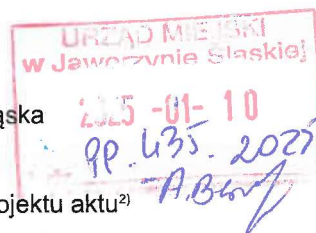 URZĄD MIEJSKI
w Jaworzynie Śląskiej
ąska
2025 -01- 10
435. 2025
ojektu aktu²⁾